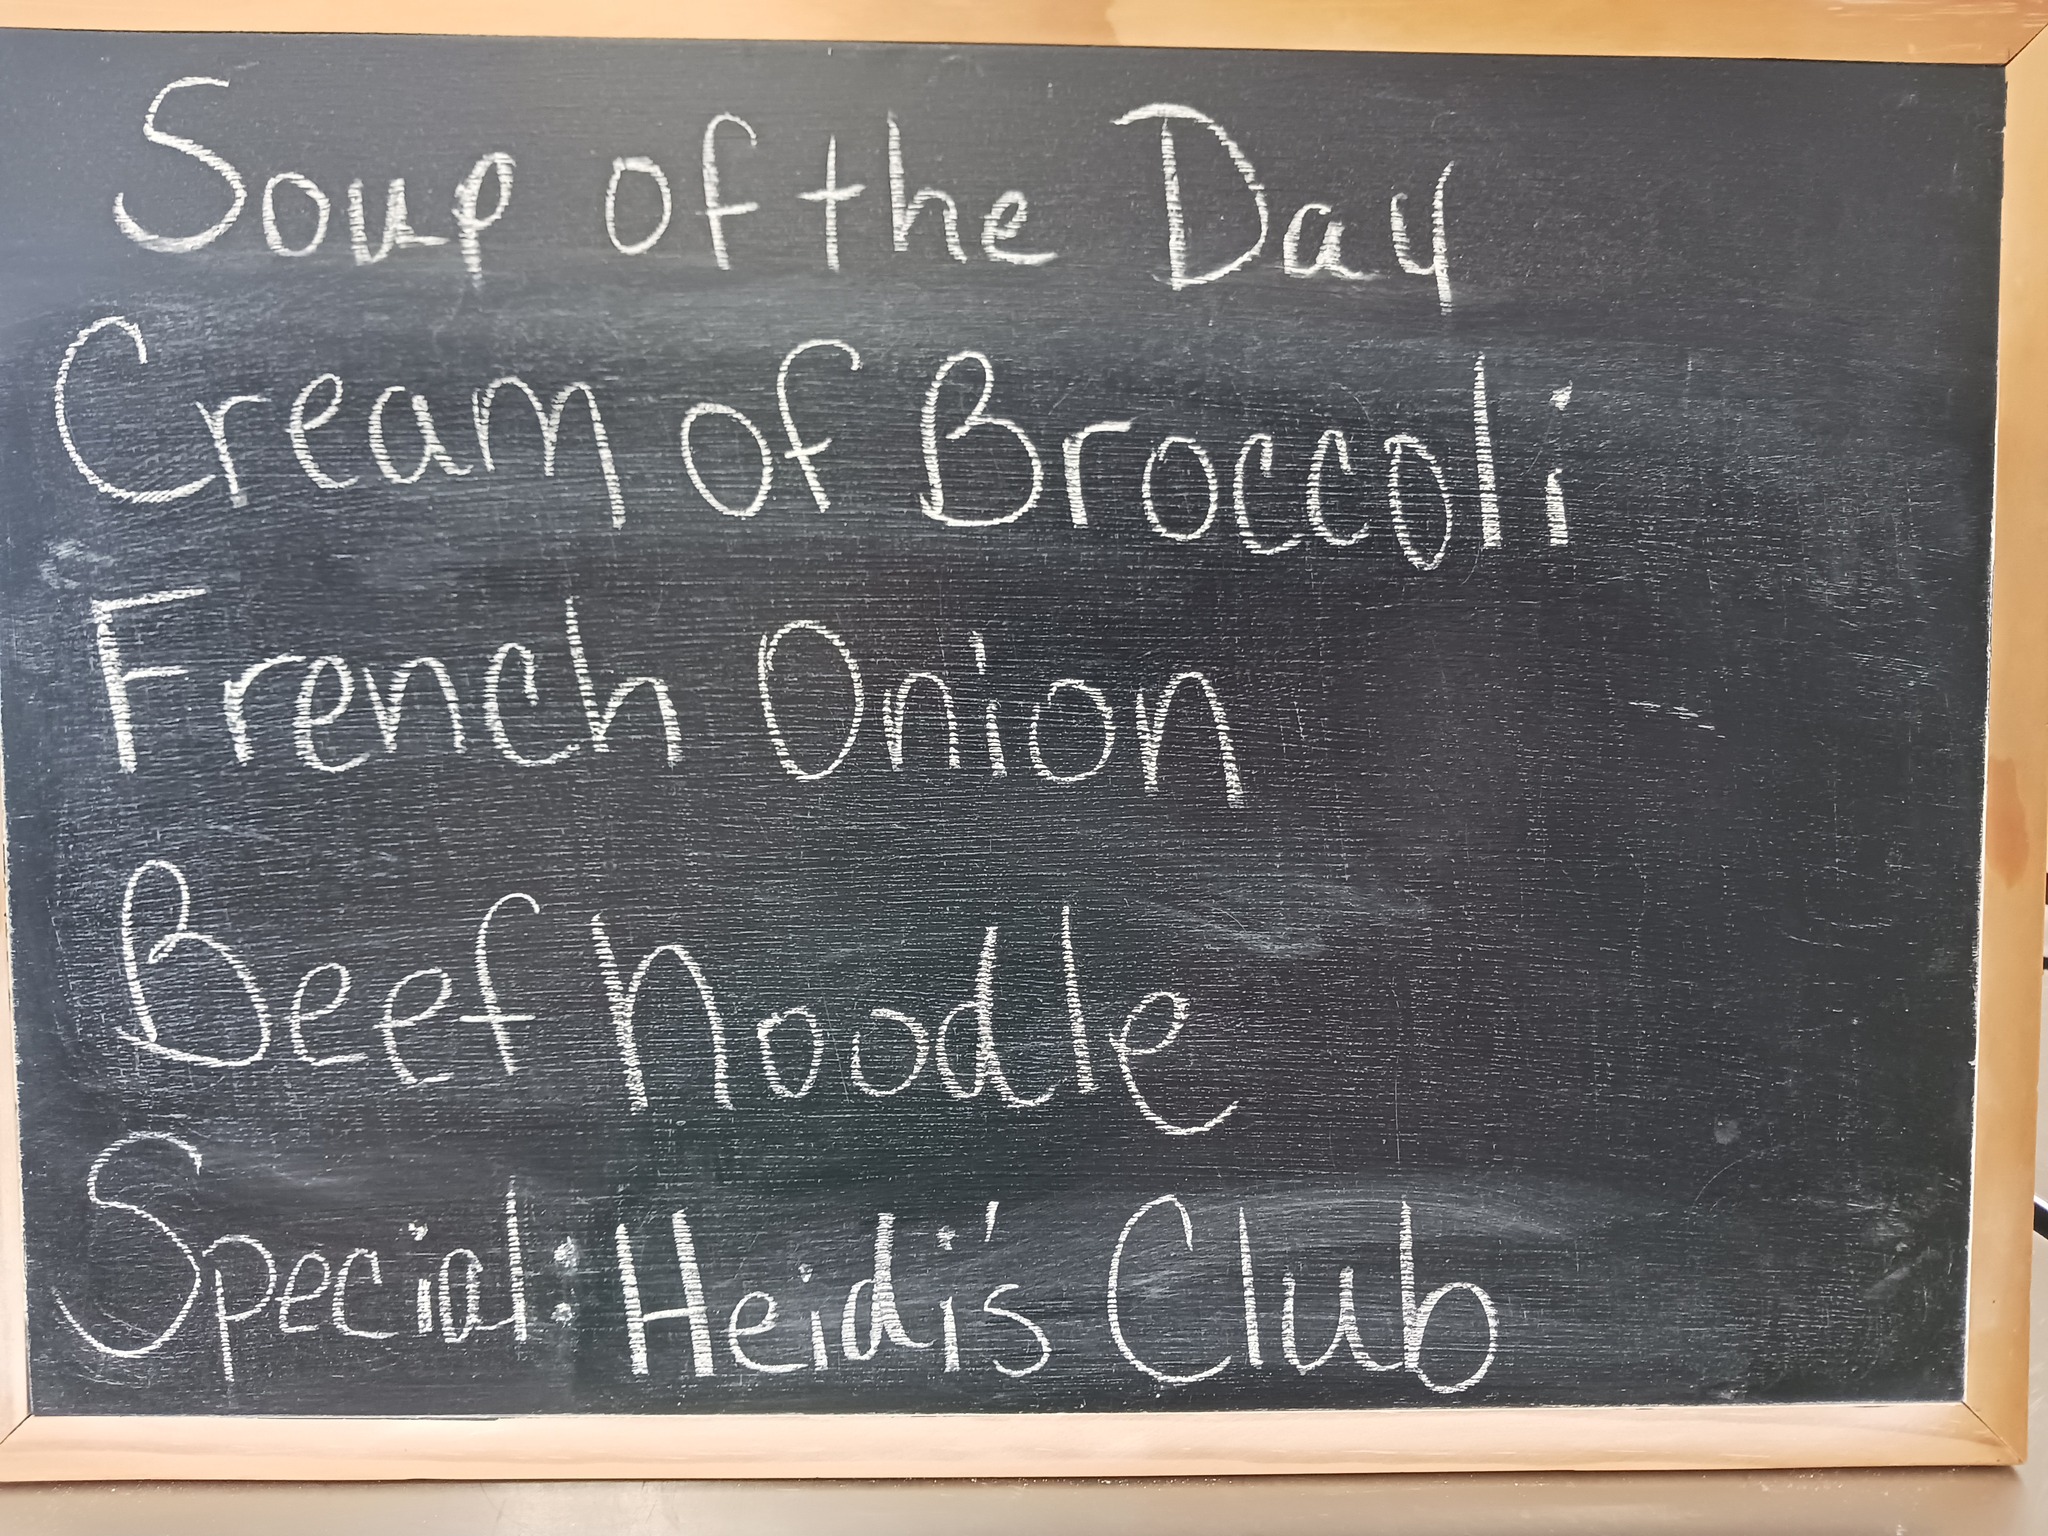 Soup of the Day
Cream of Broccoli
French Onion
Beef Noodle
Special: Heidi's Club